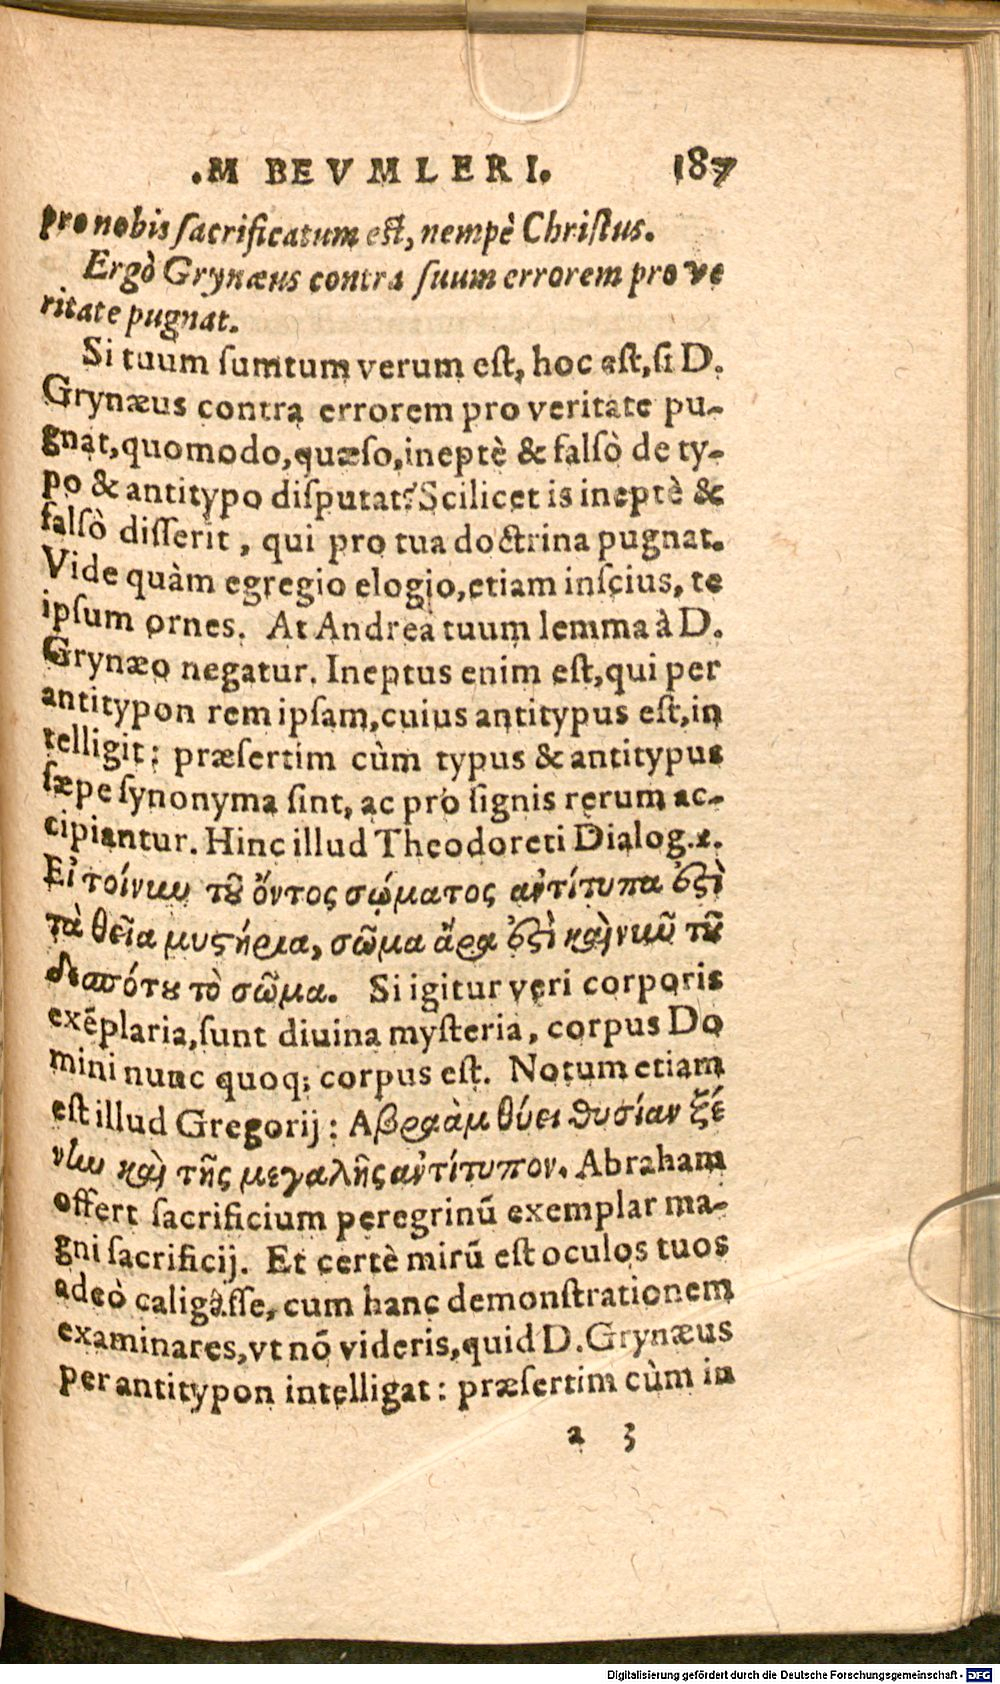 .M BEVMLERI. 187
pro nobis ſacrificatum eſt, nempè Chriſtus.
Ergò Grynæus contra ſuum errorem pro ve
ritate pugnat.
Si tuum ſumtum verum eſt, hoc eſt, ſi D.
Grynæus contra errorem pro veritate pu-
gnat, quomodo, quæſo, ineptè & falſò de ty-
po & antitypo diſputat? Scilicet is ineptè &
falſò diſſerit, qui pro tua doctrina pugnat.
Vide quàm egregio elogio, etiam inſcius, te
ipſum ornes. At Andrea tuum lemma à D.
Grynæo negatur. Ineptus enim eſt, qui per
antitypon rem ipſam, cuius antitypus eſt, in
telligit: præſertim cùm typus & antitypus
ſæpe ſynonyma ſint, ac pro ſignis rerum ac-
cipiantur. Hinc illud Theodoreti Dialog.2.
Εἰ τοίνυν τȣ̃ ὄντος σώματος ἀντίτυπα ἐϛὶ
τὰ θεῖα μυϛήρια, σῶμα ἄρα ἐϛὶ καὶ νιῦ τȣ̃
δεσπότȣ τὸ σῶμα. Si igitur veri corporis
exẽplaria, ſunt diuina myſteria, corpus Do
mini nunc quoq; corpus eſt. Notum etiam
est illud Gregorij: Αβραὰμ θύει θυσίαν ξέ
νίω καὶ τῆς μεγαλῆς ἀντίτυπον. Abraham
offert ſacrificium peregrinũ exemplar ma-
gni ſacrificij. Et certè mirũ eſt oculos tuos
adeò caligaſſe, cum hanc demonſtrationem
examinares, vt nõ videris, quid D. Grynæus
per antitypon intelligat: præſertim cùm in
a 3
Digitalisierung gefördert durch die Deutsche Forschungsgemeinschaft - DFG